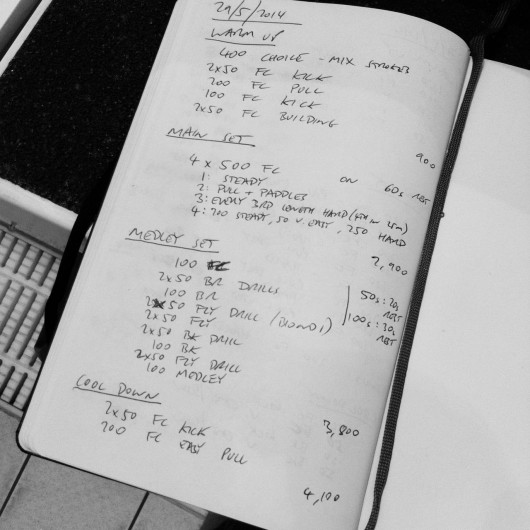 29/5/2014
WARM UP
400 CHOICE - MIX STROKES
2x50 FC KICK
200 FC PULL
100 FC KICK
2x50 FC BUILDING
900
MAIN SET
4 x 500 FC ON 60s REST
1: STEADY
2: PULL + PADDLES
3: EVERY 3RD LENGTH HARD
4: 200 STEADY, 50 V. EASY, 250 HARD
2,900
MEDLEY SET
100 FC
2x50 BR DRILLS
100 BR
2x50 FLY DRILL (BIONDI)
2x50 FLY
2x50 BK DRILL
100 BK
2x50 FLY DRILL
100 MEDLEY
50s: 20s REST
100s: 20s REST
3,800
COOL DOWN
2x50 FC KICK
200 FC EASY PULL
4,100